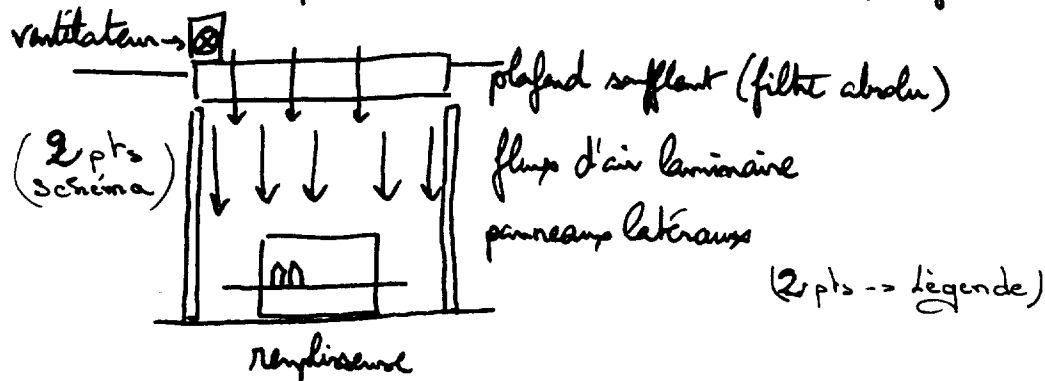 ventilateur
plafond soufflant (filtre absolu)
(2 pts
schéma)
flux d'air laminaire
panneaux latéraux
(2 pts -> Légende)
remplisseuse